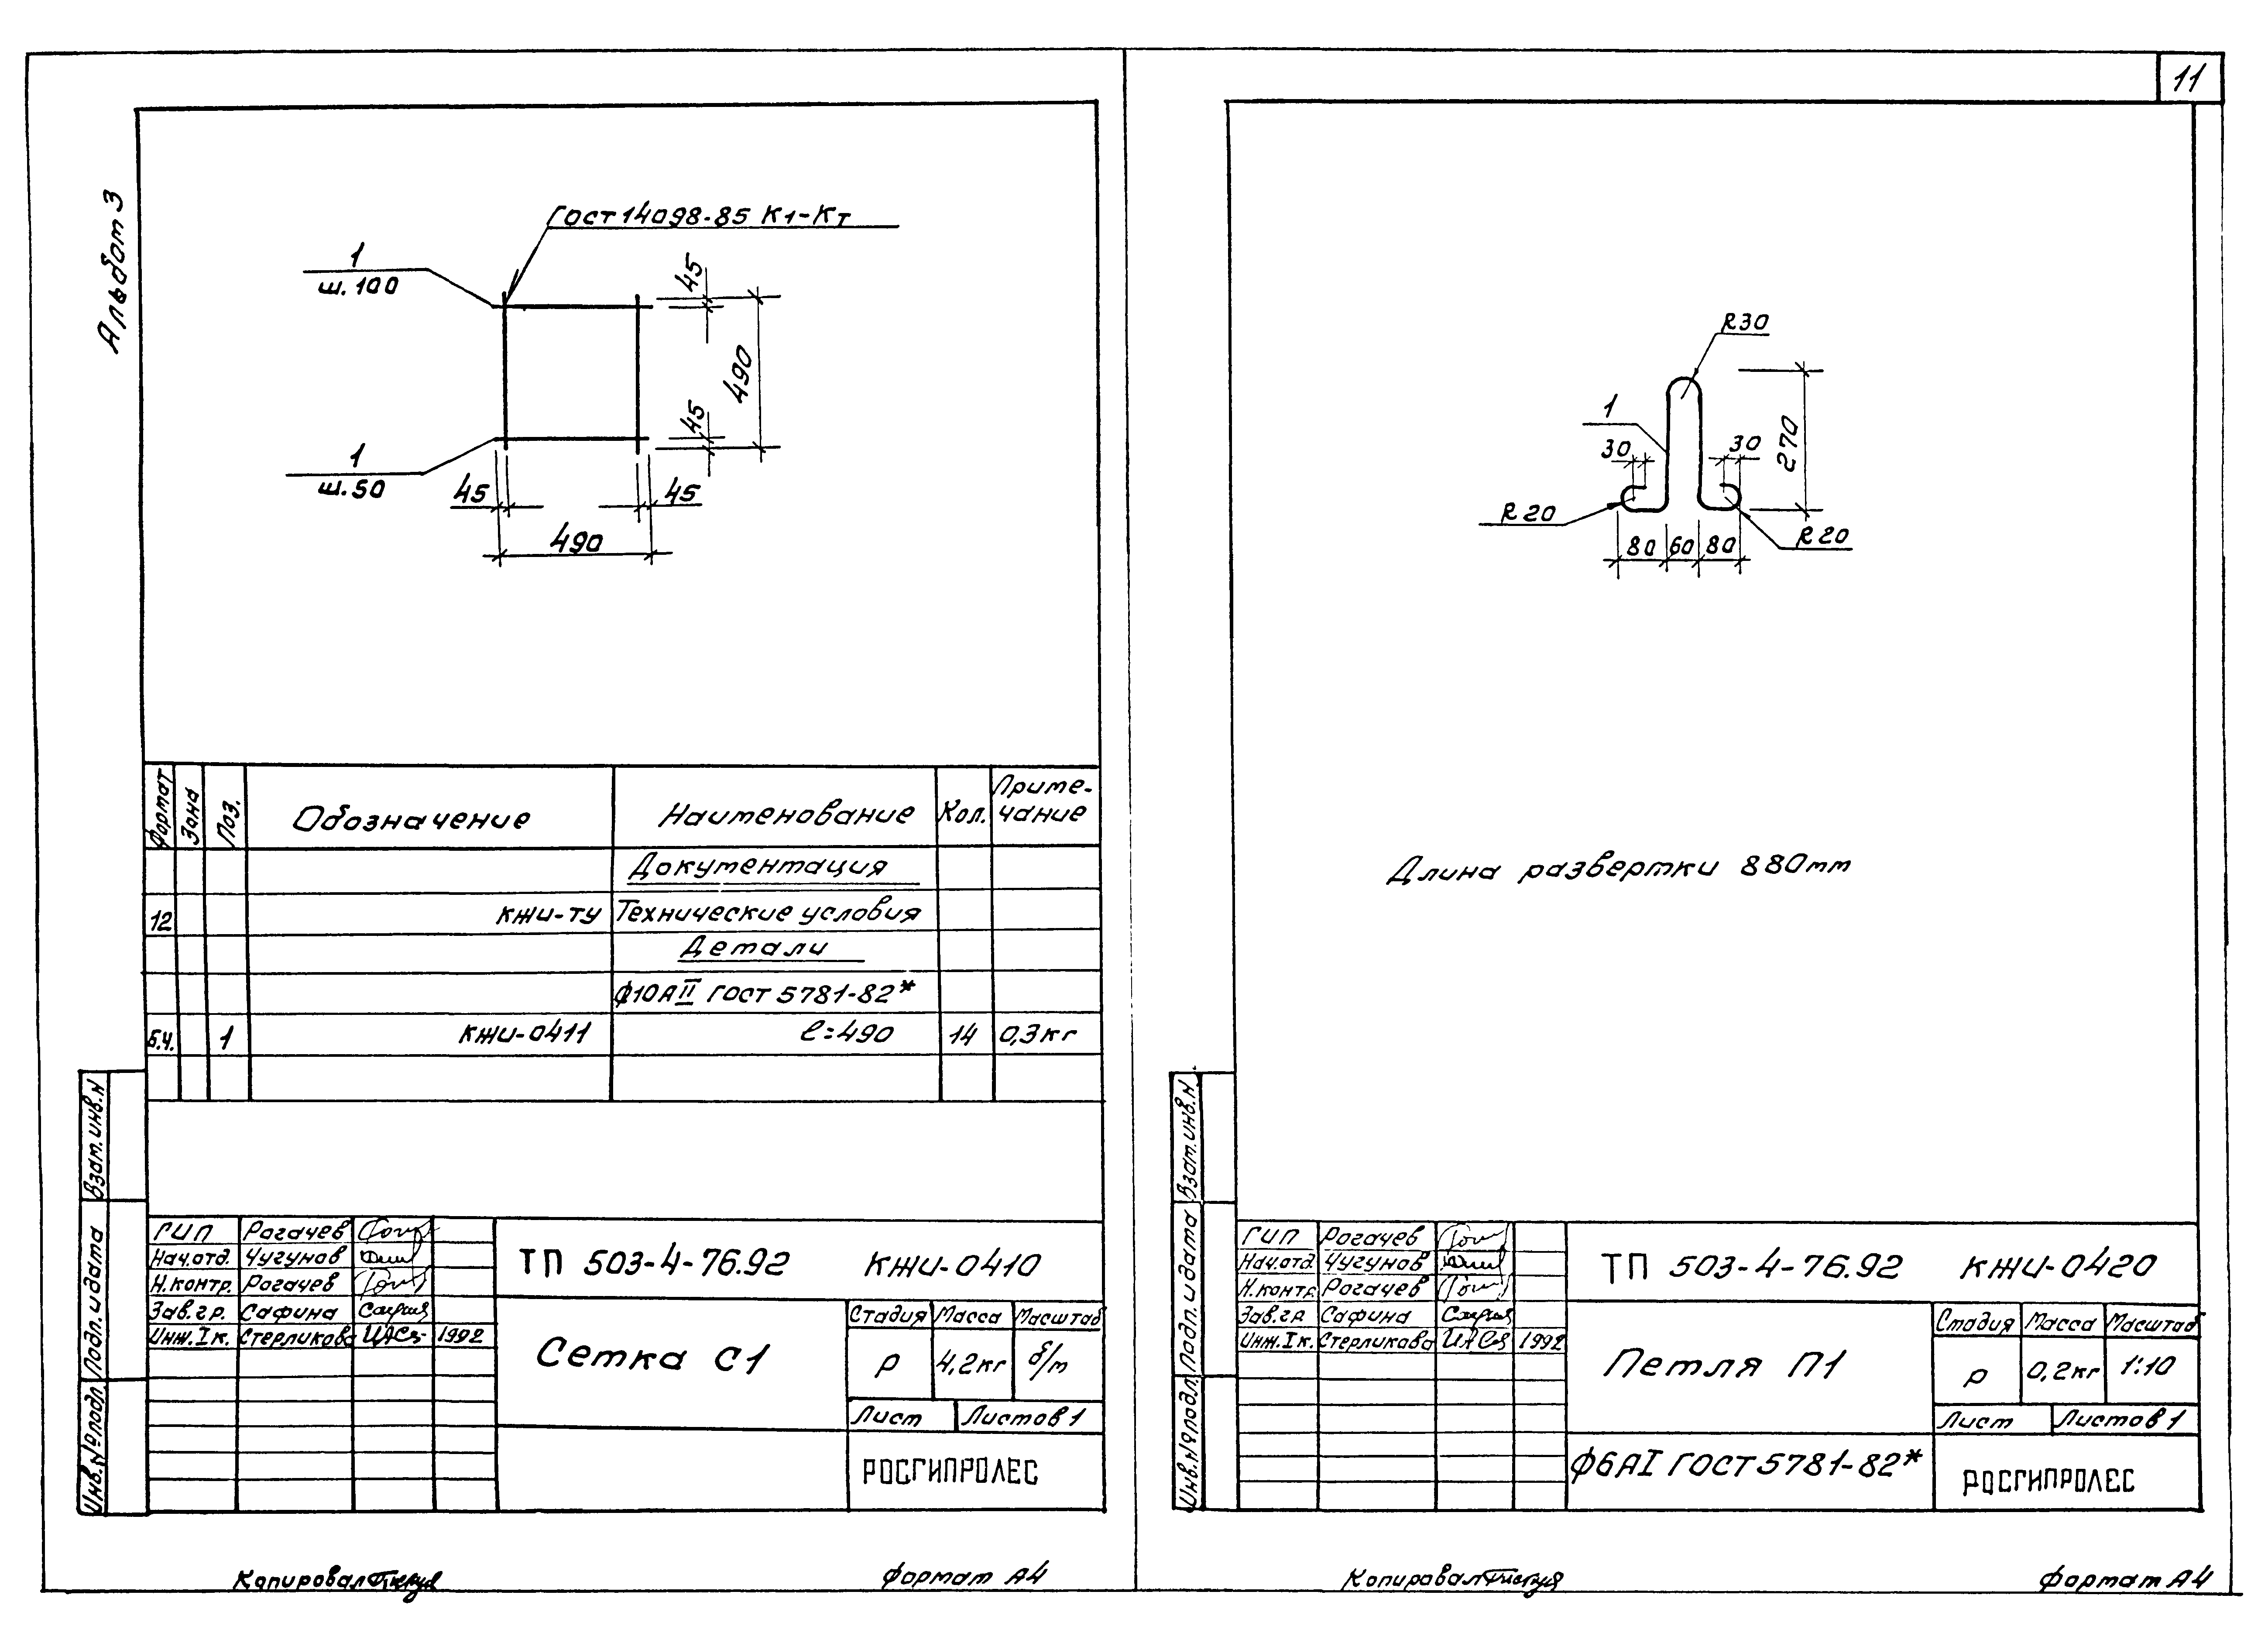 11
Альбом 3
ГОСТ 14098-85 К1-Кт
1
ш.100
45
490
45
1
ш.50
45
45
490
Формат Зона Поз. Обозначение Наименование Кол. Приме-
чание
Документация
12 КЖИ-ТУ Технические условия
Детали
ф10АII ГОСТ 5781-82*
б.ч. 1 КЖИ-0411 ℓ=490 14 0,3кг
Взам.инв.N
Подп. и дата
Инв.№ подл.
ГИП Рогачев
Нач.отд. Чугунов
Н.контр. Рогачев
Зав.гр. Сафина
Инж.Iк. Стерликова 1992
ТП 503-4-76.92 КЖИ-0410
Сетка С1
Стадия Масса Масштаб
Р 4,2кг б/м
Лист Листов 1
РОСГИПРОЛЕС
Копировал
Формат А4
R30
1
30
30
270
R20
R20
80 60 80
Длина развертки 880мм
Взам.инв.N
Подп. и дата
Инв.№ подл.
ГИП Рогачев
Нач.отд. Чугунов
Н.контр. Рогачев
Зав.гр. Сафина
Инж.Iк. Стерликова 1992
ТП 503-4-76.92 КЖИ-0420
Петля П1
Стадия Масса Масштаб
Р 0,2кг 1:10
Лист Листов 1
ф6АI ГОСТ 5781-82*
РОСГИПРОЛЕС
Копировал
Формат А4